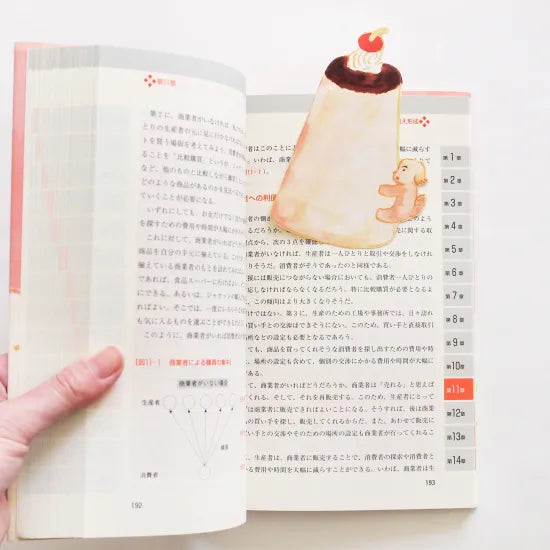 第11章
第2に、商業者がいなければ、
とりの生産者の元に足に行かなければ
トを買う場面を考えてみよう。
ることを「比較購買」というが、
ど、他のものと比較しながら購買
どのような商品があるのかを見比べ
いずれにしても、お金だけでなく
を探すための費用や時間が大幅に
これに対して、商業者がいれば
商品を自分の手元に揃えている。
揃えている商業者のもとを訪れてみ
であれば、食品スーパーに行けば
にできる。あるいは、ジャケット
ればよい。そこでは、一度にいろい
も気に入るものを選ぶことができる
このように、商業者がいれば消費
[図11-1 商業者による購買の集中
商業者がいない場合
生産者
消費者
192
者はこのことに
幅に減らす
いわば、商業者
図11-1)。
者への利便
者の側が
のよう
るだろうか。
に関する取
点から、次の3点を確認
業者がいなければ、生産者は一人ひとりと取引や交渉をしなけれ
りそうだ。消費者がそうであったのと同様である。
接には販売につながらない場合においても、消費者一人ひとりに
応しなければならなくなるだろう。特に比較購買が必要となるよ
、この傾向はより大きくなりそうだ。
ではない。第3に、生産のための工場や事務所では、日々訪れ
の買い手との交渉はできそうにない。このため、買い手と直接取引
所などの設備も必要となるであろう。
ても、商品を買ってくれそうな消費者を探し出すための費用や時
、場所も含めて、個別の交渉にかかる費用や時間が大幅に
て、商業者がいればどうだろうか。商業者は「売れる」と思えば
てくれる。そして、それを再販売する。このため、生産者にとって
ては商業者に販売できればよいことになる。そうすれば、後は商業
買い手を探し、販売してくれるからだ。また、あわせて販売に
い手との交渉やそのための場所の設定も商業者が行ってくれるこ
、生産者は、商業者に販売することで、消費者の探索や消費者と
る費用や時間を大幅に減らすことができる。いわば、商業者は生
193
第1章
第2章
第3章
第4章
第5章
第6章
第7章
第8章
第9章
第10章
第11章
第12章
第13章
第14章